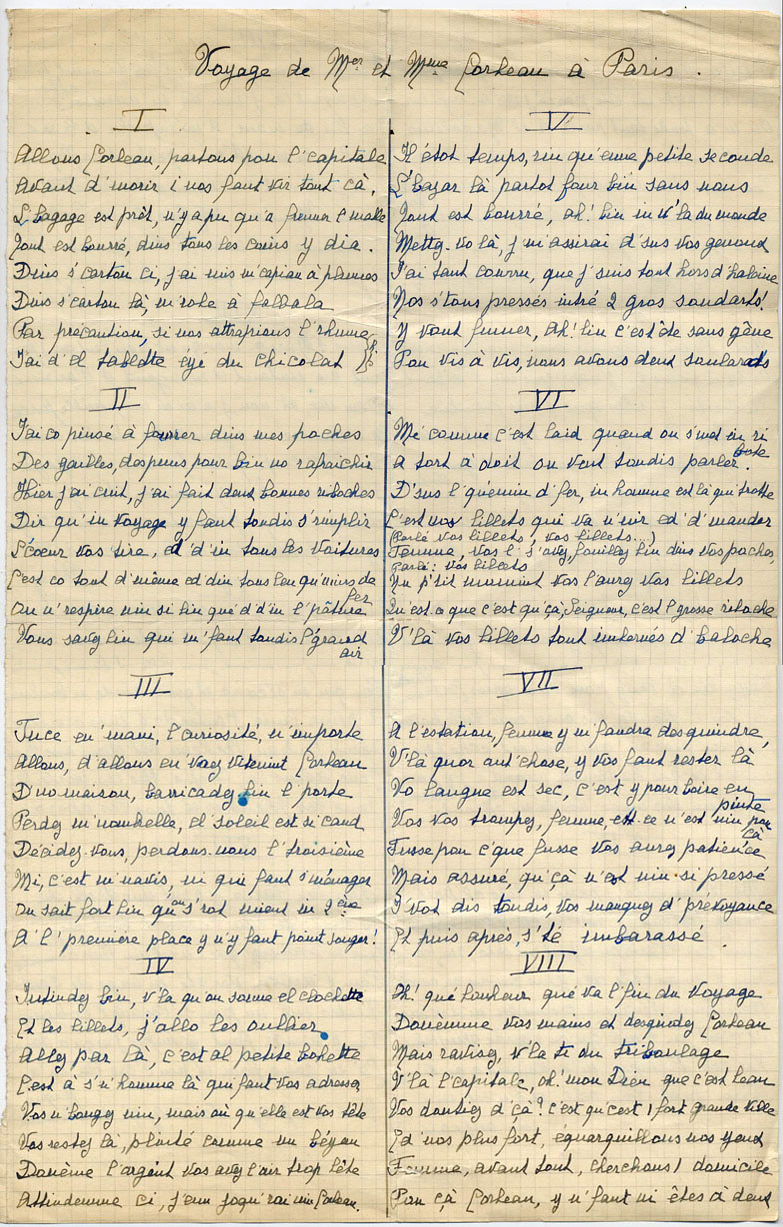 Voyage de Mer et Mme Corbeau à Paris.
I
Allons Corbeau, partons pou l'capitale
Avant d'morir i nos faut vir tout çà.
L'bagage est prêt, n'y a pu qu'a freumer l'malle
Tout est bourré, dins tous les coins y d'ia.
Dins s'carton ci, j'ai mis m'capiau à pleumes
Dins s'carton là, m'robe à falbala
Par précaution, si nos attrapions l'rhume
J'ai d'el tablette éyé du chicolat
II
J'ai co pinsé à fourrer dins mes poches
Des gailles, des preunes pour bin no rafraichir
Hier j'ai cuit, j'ai fait deux bonnes riboches
Dir qu'in voyage y faut toudis s'rimplir
L'coeur vos tire, et d'in tous les voitures
C'est co tout d'même ed'din tous leu qu'mins de fer
On n'respire nin si bin qué d'din l'pâture
Vous savez bin qui m'faut toudis l'grand air
III
Tuce en'mani, l'curiosité, n'importe
Allons, d'allons en' vaey vitemint Corbeau
D'no maison, barricadez bin l'porte
Perdez m'nombrelle, el soleil est si caud
Décidez-vous, perdons-nous l'troisième
Mi, c'est m'navis, mi qui faut s'ménager
On sait fort bin qu'on s'rot mieux in 2ème
A l'première place y n'y faut point songer!
IV
Intindez bin, v'la qu'on sonne el clochette
Et les billets, j'allo les oublier
Allez par là, c'est al petite bohette
C'est à s'n'homme là qui faut vos adresser
Vos n'bougez nin, mais où qu'elle est vos tête
Vos restez là, planté comme un béyau
Donème l'argent vos avez l'air trop bête
Attindemme ci, j'eun joqu'rai nin Corbeau.
V
Il étot temps, rin qu'enne petite seconde
L'bazar là partot four bin sans nous
Tout est bourré, ah! bin in v'la du monde
Mettez-vo là, j'm'assirai d'sus vos genoux
J'ai tant couru, que j'suis tout hors d'haleine
Nos s'tons pressés intré 2 gros soudarts!
Y vont feumer, Ah! bin c'est ête sans gêne
Pou vis à vis, nous avons deux soularts
VI
Mé comme c'est laid quand on s'met in ribote
A tort à doit on veut toudis parler.
D'sus l'quemin d'fer, in homme est là qui trotte
C'est vos billets qui va v'nir ed'd'mander
(Parlé vos billets, vos billets...)
Femme, vos l's'avez, fouillez bin dins vos poches,
Parlé: vos billets
Un p'tit mumint vos l'aurez vos billets
Qu'est-ce que c'est qu'çà, Seigneur, c'est l'grosse riboche
V'là vos billets tout imbernés d'baloche
VII
A l'estation, femme y m'faudra desquindre,
V'là quor aut'chose, y vos faut rester là
Vo langue est sec, c'est y pour boire eun pinte
Vos vos trompez, femme, est-ce n'est nin pou çà
Fusse pou c'que fusse vos aurez patience
Mais assuré, qu'çà n'est nin si pressé
J'vos dis toudis, vos manquez d'prévoyance
Et puis après, s'té imbarassé.
VIII
Ah! qué bonheur qué va l'fin du voyage
Donèmme vos mains et desquindez Corbeau
Mais ravisez, v'la ti du triboulage
V'là l'capitale, oh! mon Dieu que c'est beau
Vos doutiez d'çà? c'est qu'c'est 1 fort grande ville
Ed'nos plus fort, équarquillons nos yeux
Femme, avant tout, cherchons 1 domicile
Pou çà Corbeau, y n'faut ni êtes à deux